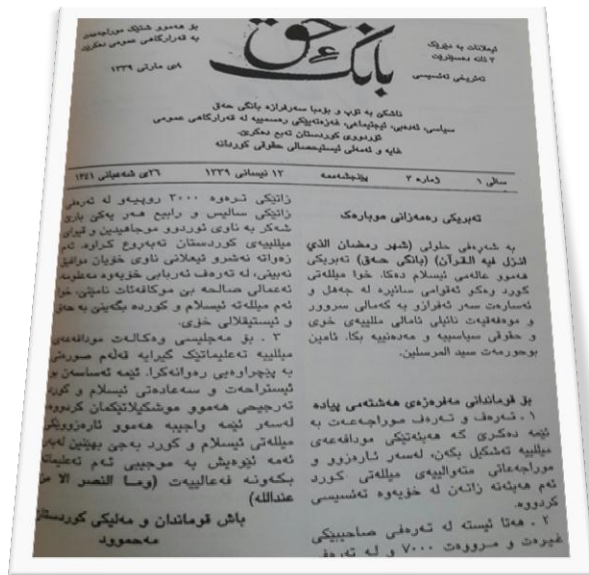 بۆ هەموو شتێک موراجەعەت
بە قەرارگاهی عمومی دەکرێت
٨ی مارتی ١٣٣٩
بانگ حق
ئیعلانات بە دێرێک
٢ ئانە دەسێنرێت
تەئریخی تەئسیسی
ناشکێ بە تۆپ و بۆمبا سەرفرازە بانگی حەق
سیاسی، ئەدەبی، ئیجتیماعی، غەزەتەیێکی رەسمییە لە قەرارگاهی عمومی
ئوردووی کوردستان تەبع دەکرێ.
غایە و ئەمەلی ئیستیحسالی حقوقی کوردانە
سالی ١ ژمارە ٣ پێنجشەممە ١٢ نیسانی ١٣٣٩ ٢٦ی شەعبانی ١٣٤١
تەبریکی رەمەزانی موبارەک
بە شەرەفی حلولی (شهر رمضان الذي
انزل فيه القرآن) (بانگی حەق) تەبریکی
هەموو عالەمی ئیسلام دەکا. خوا میللەتی
کورد وەکو ئەقوامی سائیرە لە جەهل و
ئەسارەت سەر ئەفرازو بە کەمالی سروور
و موەفەقیەت نائیلی ئامالی مللییەی خوی
و حقوقی سیاسییە و مەدەنییە بکا. ئامین
بوحورمەت سید المرسلین.
بۆ قوماندانی مەفرەزەی هەشتەمی پیادە
١ ـ تەرەف و تەرەف موراجەعەت بە
ئێمە دەکرێ کە هەیئەتێکی مودافەعەی
میللییە تەشکیل بکەن، لەسەر ئارەزوو و
موراجەعاتی متەوالییەی میللەتی کورد
ئەم هەیئەتە زاتەن لە خۆیەوە تەئسیسی
کردووە.
٢ ـ هەتا ئیستە لە تەرەفی صاحیبێکی
غیرەت و مرووەت ٧٠٠٠ و لە تەرەفی
زاتێکی ترەوە ٣٠٠٠ روپیەو لە تەرەفی
زاتێکی سالیس و رابیع هەر یەکێ بارێ
شەکر بە ناوی ئوردوو موجاهیدین و قیوای
میللییەی کوردستان تەبەروع کراوە. ئەم
زەواتە نەشرو ئیعلانی ناوی خۆیان موافیق
نەبینی، لە تەرەف ئەربابی خۆیەوە مەعلومە.
ئەعمالی صالحە بێ موکافەئات نامێنێ، خوا
ئەم میللەتە ئیسلام و کوردە بگەینێ بە حەق
و ئیستیقلالی خۆی.
٣ ـ بۆ مەجلیسی وەکالەت مودافەعەی
میللییە تەعلیماتێک گیرایە قەلەم صورەتی
بە پێچراوەیی رەوانەکرا. ئێمە ئەساسەن بۆ
ئیستراحەت و سەعادەتی ئیسلام و کورد
تەرجیحی هەموو موشکیلاتێکمان کردووە،
لەسەر ئێمە واجیبە هەموو ئارەزوویێکی
میللەتی ئیسلام و کورد بەجێ بهێنین لەبەر
ئەمە ئێوەیش بە موجیبی ئەم تەعلیماتە
بکەونە فەعالییەت (وما النصر الا من
عندالله)
باش قوماندان و مەلیکی کوردستان
مەحموود